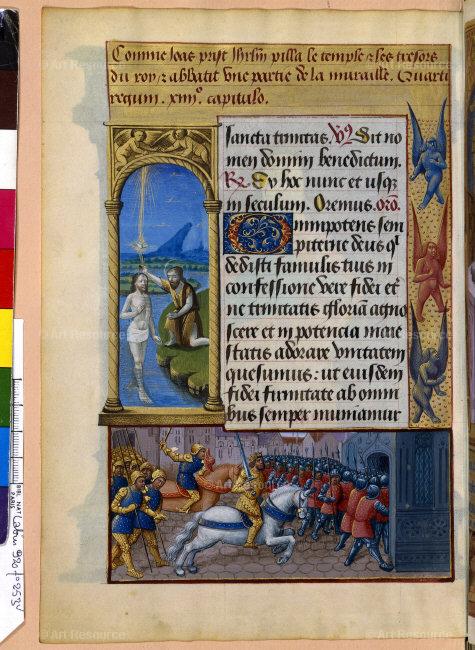 Comme Joas prist Jhrlm pilla le temple & les tresors
du roy & abbatit vne partie de la muraille. Quarti
regum. xiiij°. capitulo.
sancta trinitas. Vꝰ Sit no
men domini benedictum.
R. Ex hoc nunc et usq;
in seculum. Oremus. oro.
Omnipotens sem
piterne deus q'
dedisti famulis tuis in
confessione vere fidei et
ne trinitatis gloriā agno
scere et in potencia maie
statis adorare vnitatem
quesumus: ut eiusdem
fidei firmitate ab omni
bus semper muniamur
BIBL. NAT.
PARIS
Latin 920 fo 253v
© Art Resource